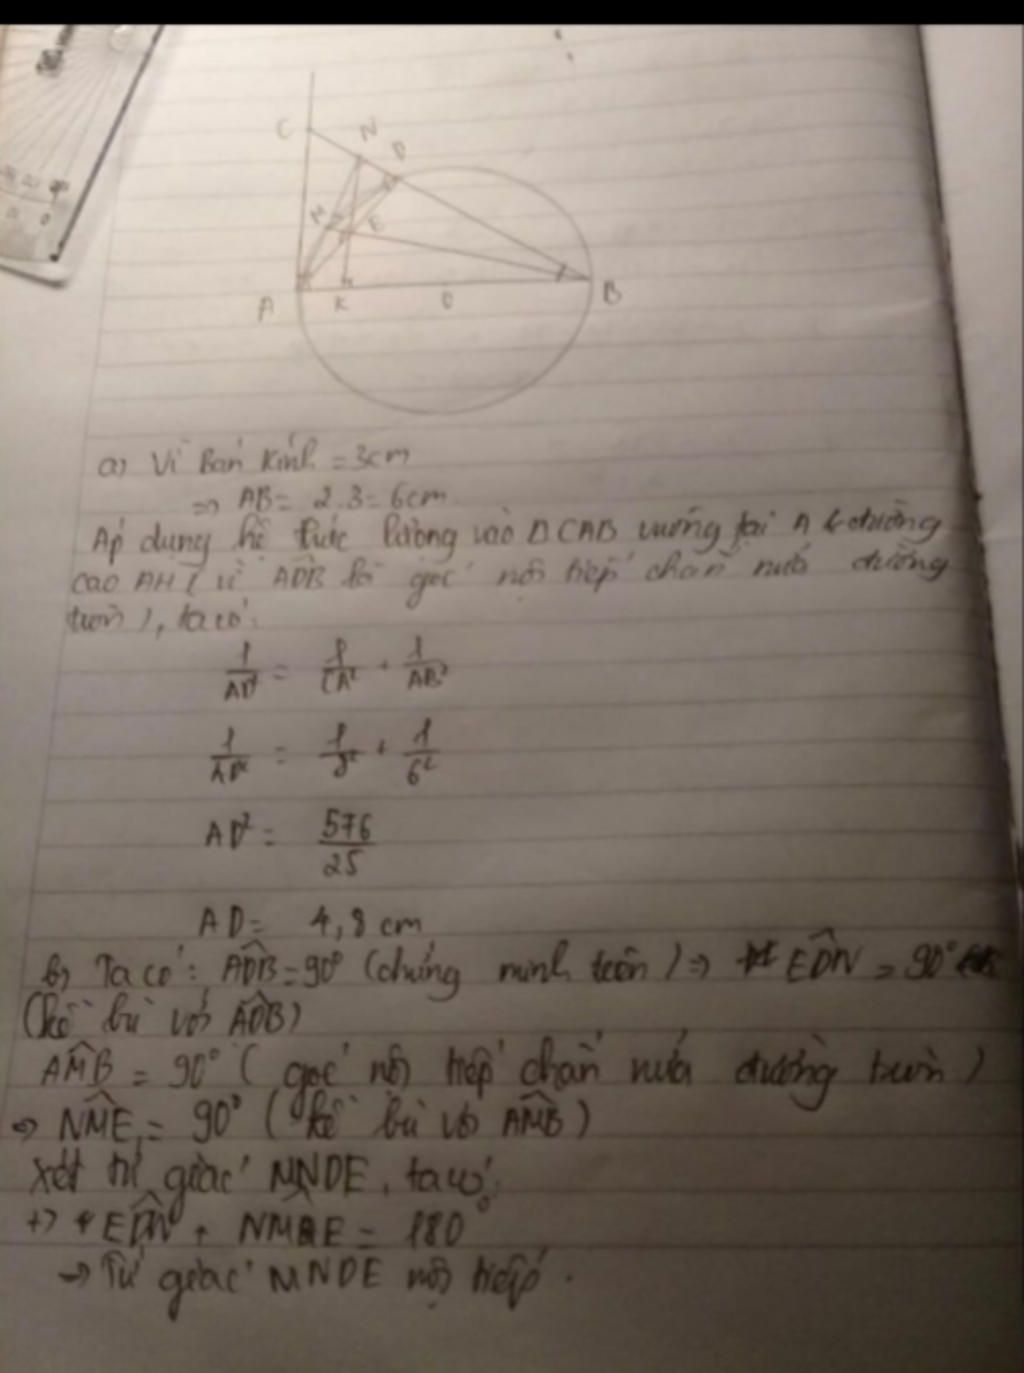 C N D
M E
A K O B
a) Vì Bán kính = 3cm
=> AB = 2.3 = 6cm
Áp dụng hệ thức lượng vào Δ CAB vuông tại A & đường
cao AH ( vì ADB là góc nội tiếp chắn nửa đường
tròn ), ta có:
1/AD² = 1/CA² + 1/AB²
1/AD² = 1/8² + 1/6²
AD² = 576/25
AD = 4,8 cm
b) Ta có: ADB = 90° (chứng minh trên ) => EDN = 90°
(kề bù với ADB)
AMB = 90° ( góc nội tiếp chắn nửa đường tròn )
=> NME = 90° ( kề bù với AMB )
Xét tứ giác MNDE, ta có:
+> EDN + NME = 180°
-> Tứ giác MNDE nội tiếp.